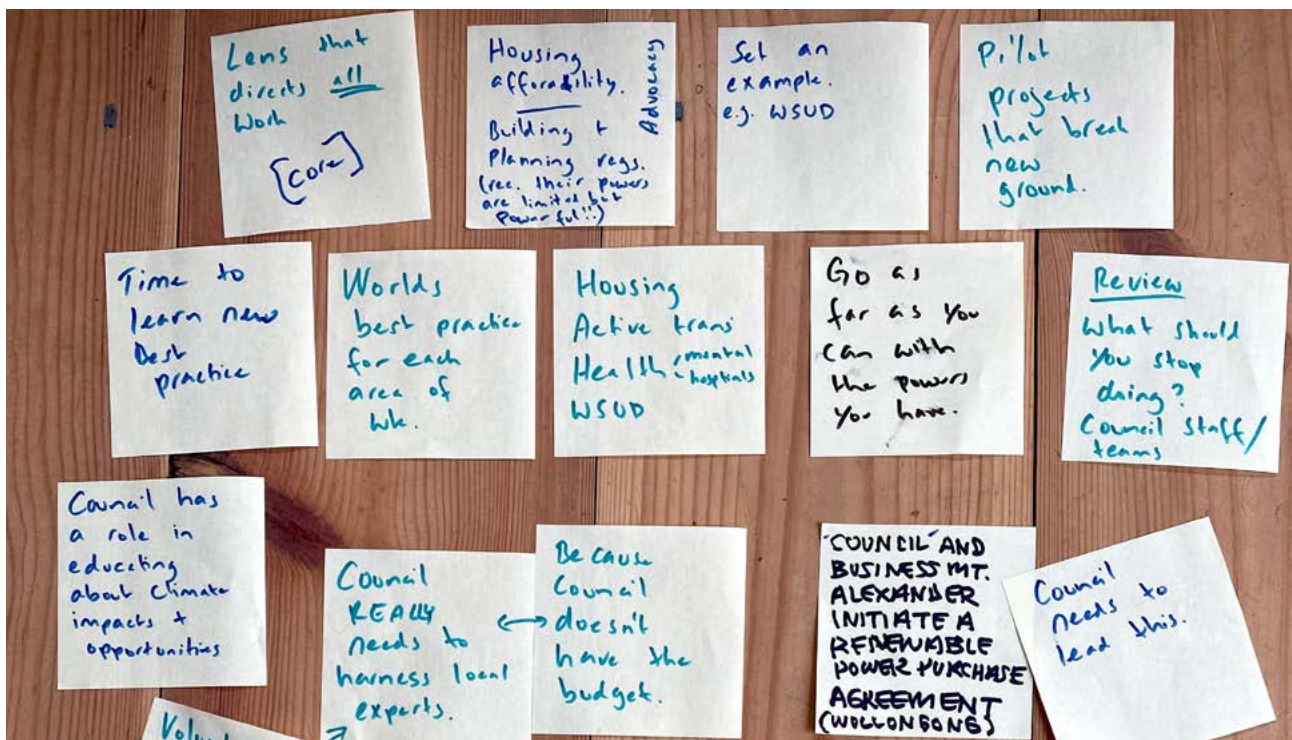 Lens that
directs all
work
[core]
Housing
affordability.
Building +
Planning regs.
(rec. their powers
are limited but
powerful!!)
Advocacy
Set an
example.
e.g. WSUD
Pilot
projects
that break
new
ground.
Time to
learn new
Best
practice
Worlds
best practice
for each
area of
wk.
Housing
Active trans
Health - mental
- hospitals
WSUD
Go as
far as you
can with
the powers
you have.
Review
What should
you stop
doing?
Council staff/
teams
Council has
a role in
educating
about climate
impacts +
opportunities
Council
REALLY
needs to
harness local
experts.
Because
Council
doesn't
have the
budget.
"COUNCIL" AND
BUSINESS MT.
ALEXANDER
INITIATE A
RENEWABLE
POWER PURCHASE
AGREEMENT
(WOLLONGONG)
Council
needs to
lead this.